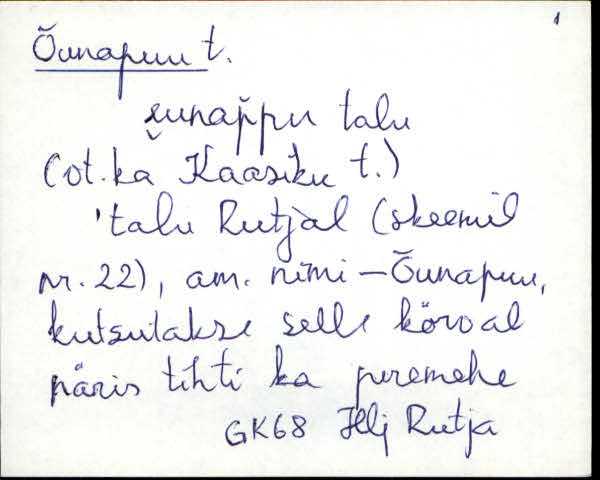 1
Õunapuu t.
ɛ̮unap̆pu talu
(ot. ka Kaasiku t.)
'talu Rutjal (skeemil
nr. 22), am. nimi – Õunapuu,
kutsutakse selle kõrval
päris tihti ka peremehe
GK68 Hlj Rutja